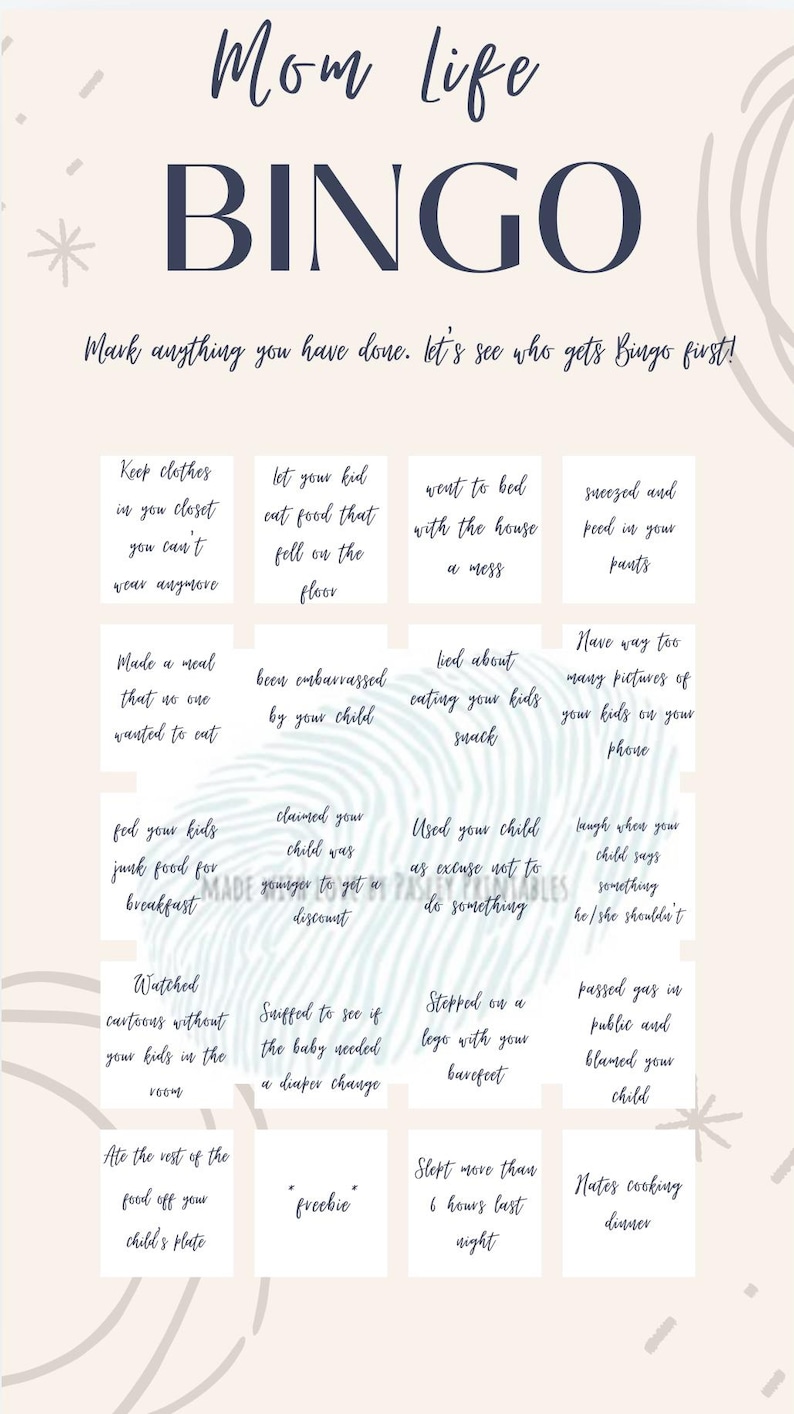 Mom Life
BINGO
Mark anything you have done. Let's see who gets Bingo first!
Keep clothes
in you closet
you can't
wear anymore
let your kid
eat food that
fell on the
floor
went to bed
with the house
a mess
sneezed and
peed in your
pants
Made a meal
that no one
wanted to eat
been embarrassed
by your child
lied about
eating your kids
snack
Have way too
many pictures of
your kids on your
phone
fed your kids
junk food for
breakfast
claimed your
child was
younger to get a
discount
Used your child
as excuse not to
do something
laugh when your
child says
something
he/she shouldn't
MADE WITH LOVE BY PASLEY PRINTABLES
Watched
cartoons without
your kids in the
room
Sniffed to see if
the baby needed
a diaper change
Stepped on a
lego with your
barefeet
passed gas in
public and
blamed your
child
Ate the rest of the
food off your
child's plate
*freebie*
Slept more than
6 hours last
night
Hates cooking
dinner